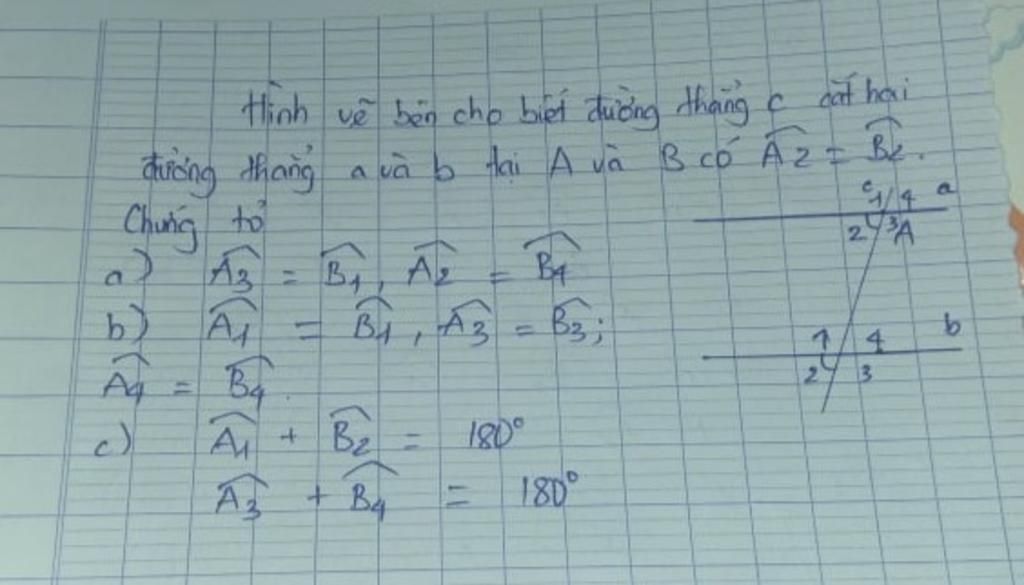 Hình vẽ bên cho biết đường thẳng c cắt hai
đường thẳng a và b tại A và B có A2 = B2.
Chứng tỏ
a) A3 = B1, A2 = B4
b) A1 = B1, A3 = B3;
A4 = B4.
c) A1 + B2 = 180°
A3 + B4 = 180°
c 1 4 a
2 3 A
1 4 b
2 3